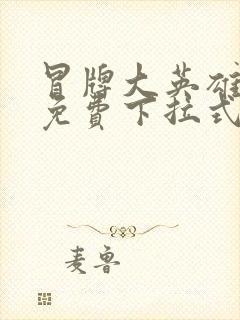 冒牌大英雄
免費下拉式
麦鲁